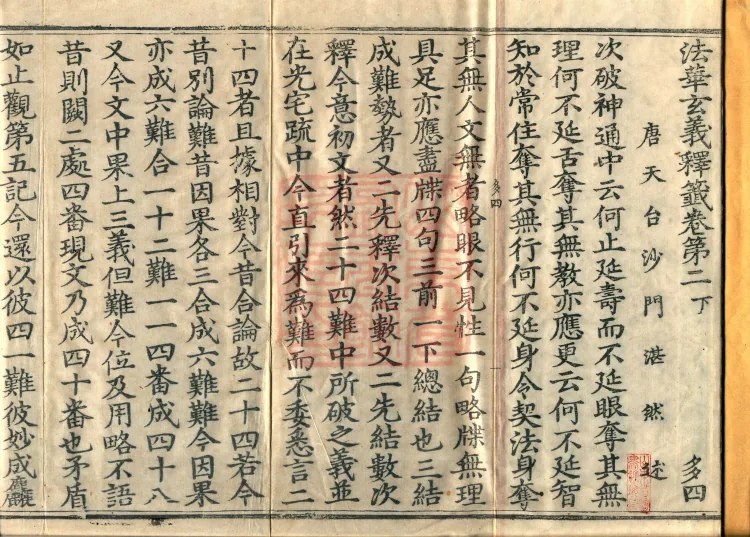 法華玄義釋籤卷第二下 多四
唐天台沙門湛然 述
次破神通中云何止延壽而不延眼奪其無
理何不延舌奪其無教亦應更云何不延智
知於常住奪其無行何不延身令契法身奪
多四
其無人文無者略眼不見性一句略牒無理
具足亦應盡牒四句三前一下總結也三結
成難勢者又二先釋次結數又二先結數次
釋今意初文者然二十四難中所破之義並
在光宅疏中今直引來為難而不委悉言二
十四者且據相對今昔合論故二十四若今
昔別論難昔因果各三合成六難難今因果
亦成六難合一十二難一一四番成四十八
又今文中果上三義但難今位及用略不語
昔則闕二處四番現文乃成四十番也矛盾
如止觀第五記今還以彼四一難彼妙成麤